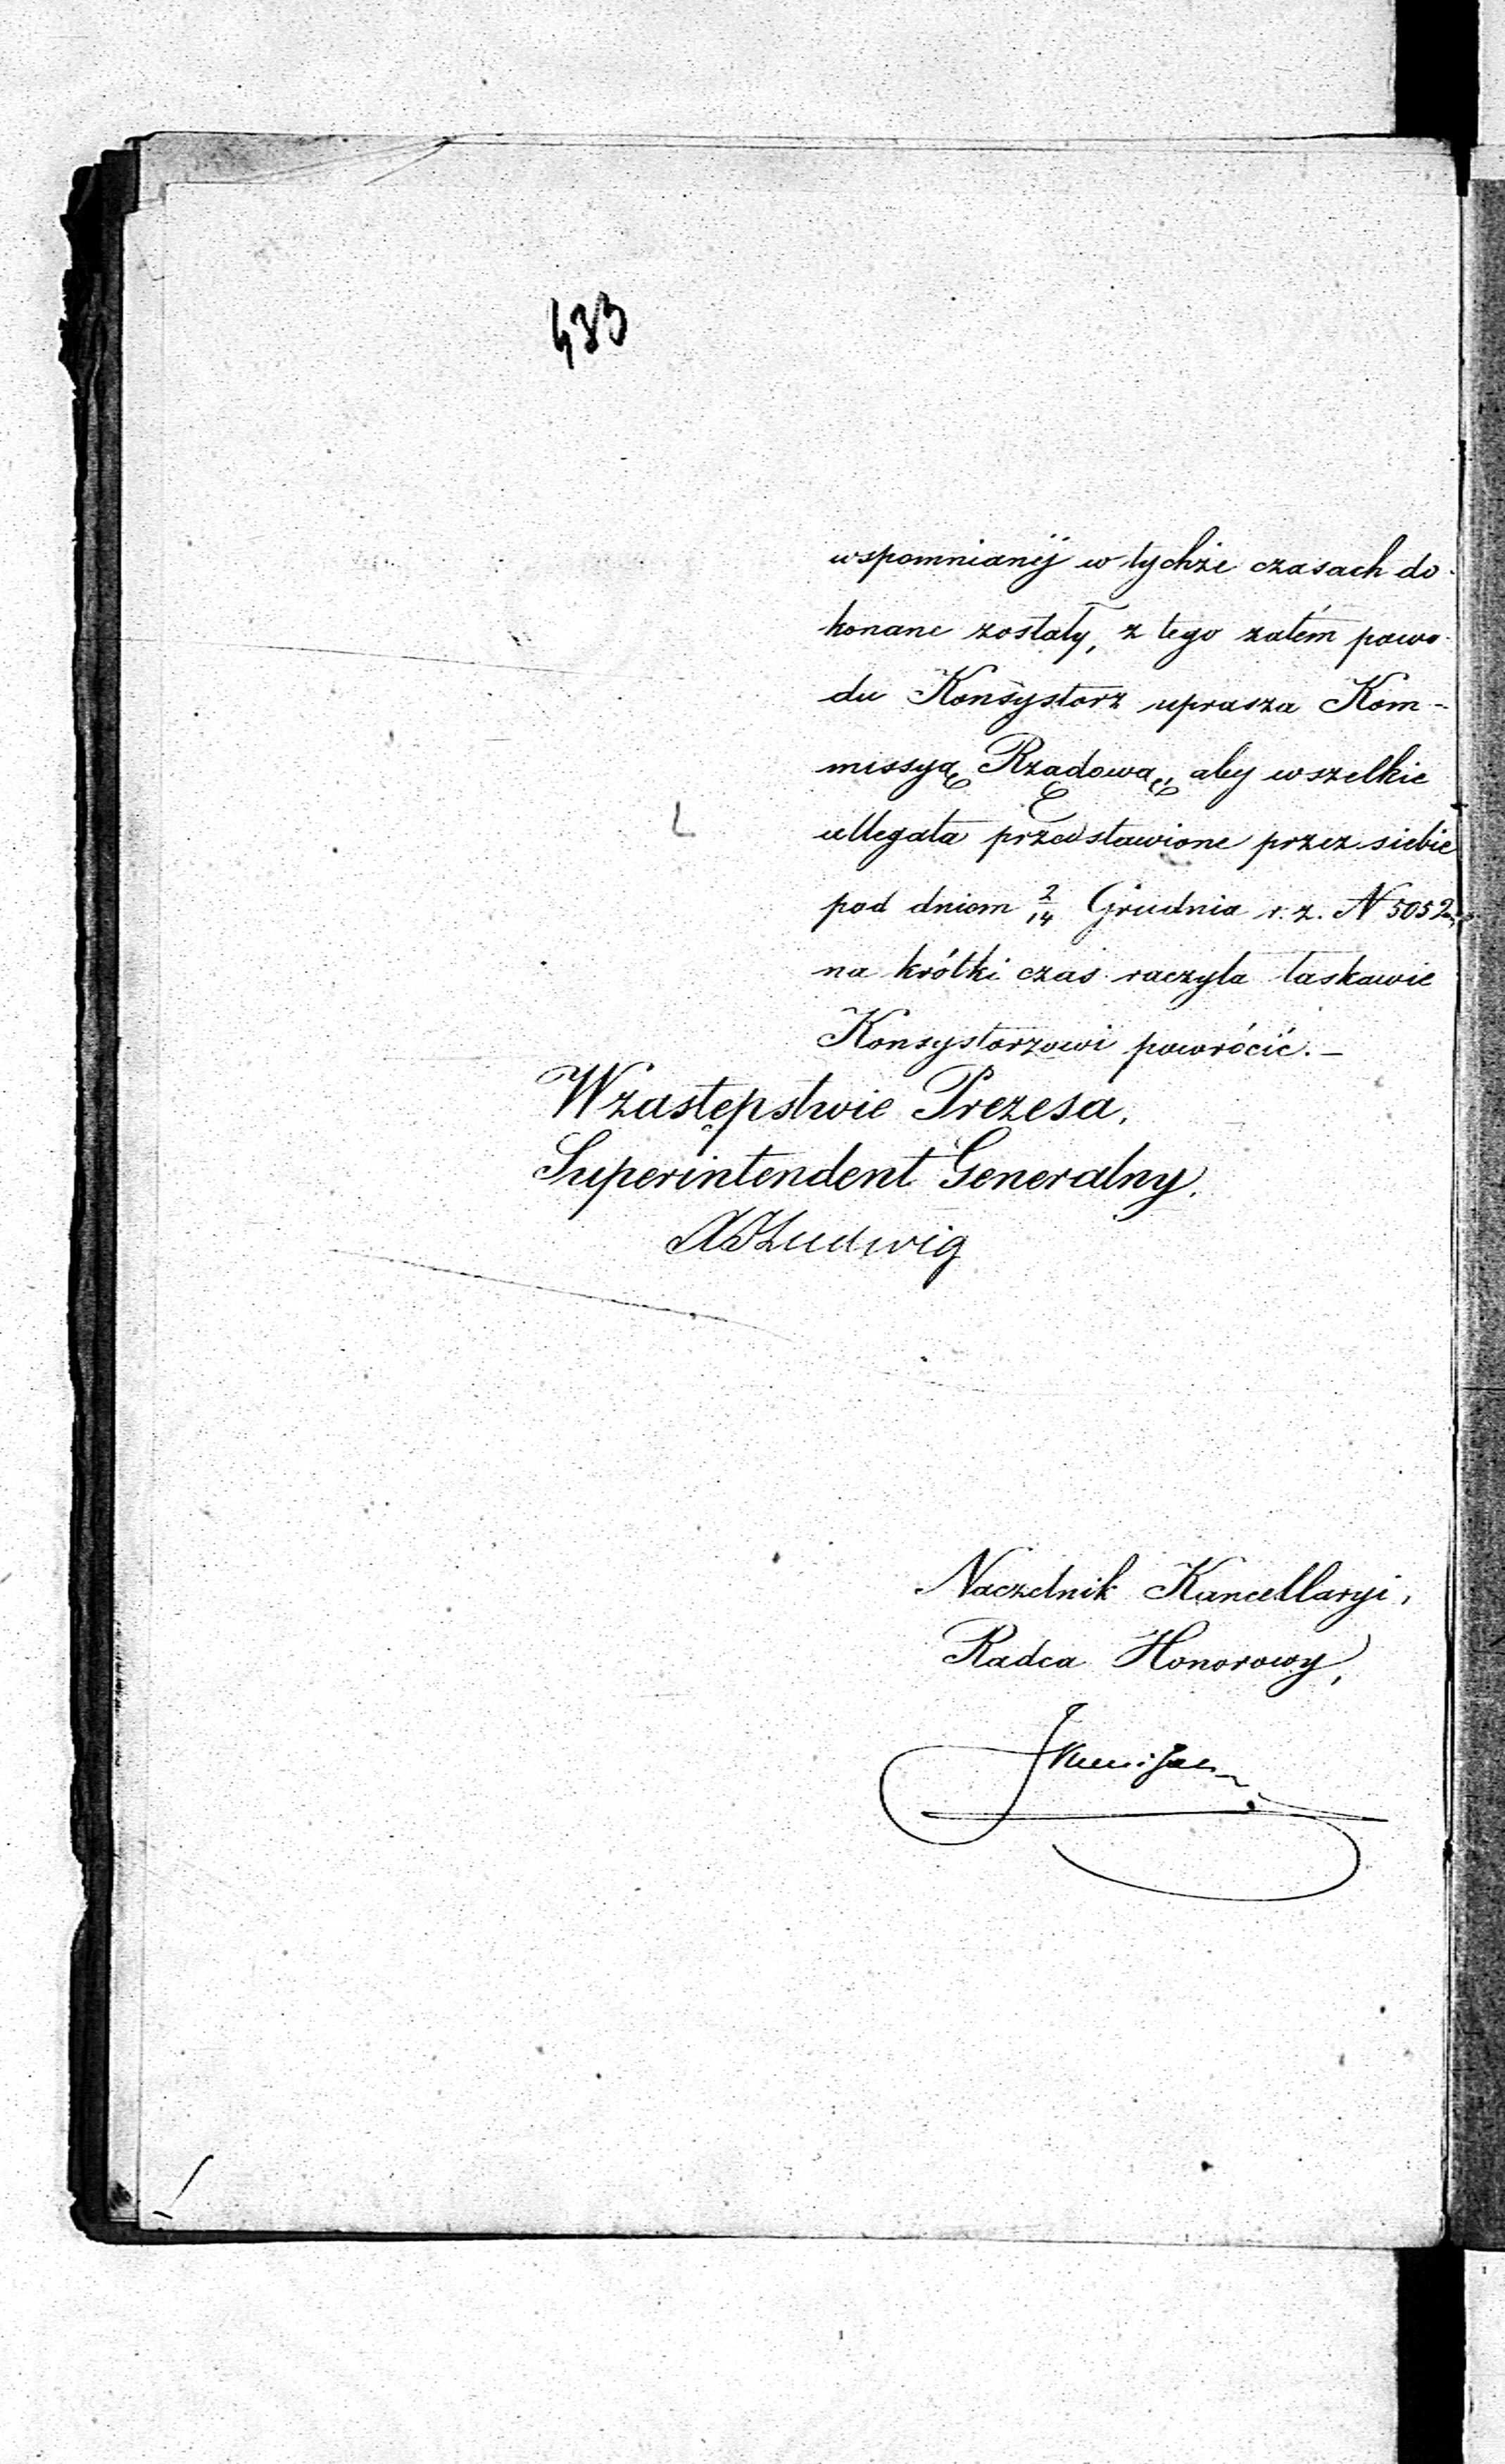 433
wspomnianéj w tychże czasach do-
konane zostały, z tego zatém powo-
du Konsystorz uprasza Kom-
missyą Rządową, aby wszelkie
allegata przedstawione przez siebie
pod dniem 2/14 Grudnia r. z. N 5052,
na krótki czas raczyła łaskawie
Konsystorzowi powrócić. –
W zastępstwie Prezesa,
Superintendent Generalny,
Ludwig
Naczelnik Kancellaryi,
Radca Honorowy,